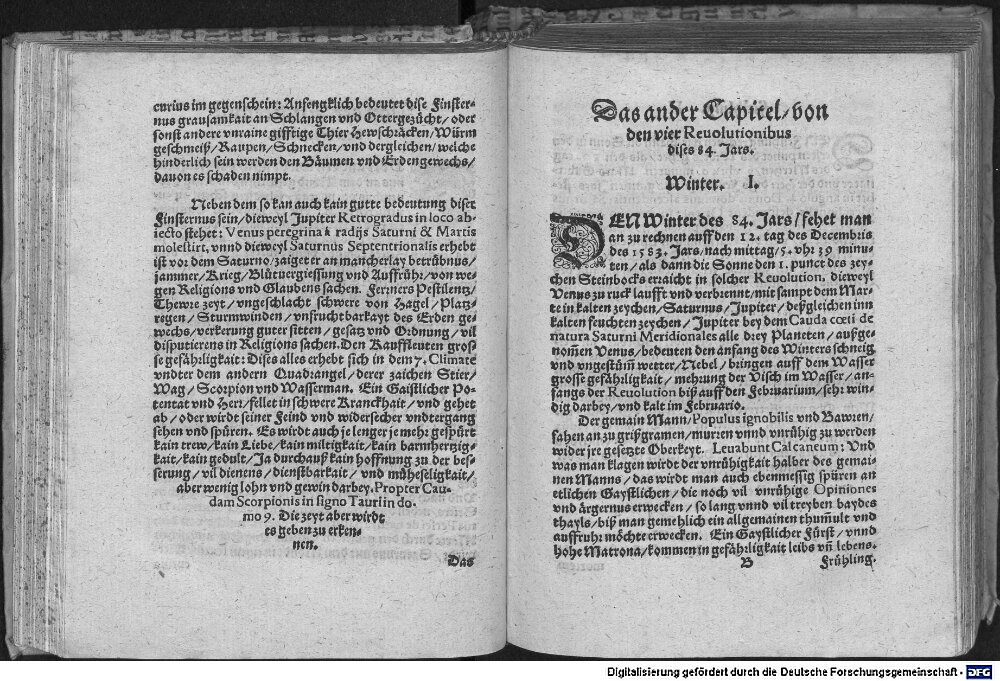 curius im gegenschein: Anfengklich bedeutet dise Finster-
nus grausamkait an Schlangen vnd Ottergezücht/ oder
sonst andere vnraine gifftige Thier Hewschräcken/ Würm
geschmeiß/ Raupen/ Schnecken/ vnd dergleichen/ welche
hinderlich sein werden den Bäumen vnd Erdengewechs/
dauon es schaden nimpt.
Neben dem so kan auch kain gutte bedeutung diser
Finsternus sein/ dieweyl Jupiter Retrogradus in loco ab-
iecto stehet: Venus peregrina à radijs Saturni & Martis
molestirt, vnnd dieweyl Saturnus Septentrionalis erhebt
ist vor dem Saturno/ zaiget er an mancherlay betrübnus/
jammer/ Krieg/ Blůtuergiessung vnd Auffrůhr/ von we-
gen Religions vnd Glaubens sachen. Ferners Pestilentz/
Thewre zeyt/ vngeschlacht schwere von Hagel/ Platz-
regen/ Sturmwinden/ vnfruchtbarkayt des Erden ge-
wechs/ verkerung guter sitten/ gesatz vnd Ordnung/ vil
disputierens in Religions sachen. Den Kauffleuten gros-
se gefährligkait: Dises alles erhebt sich in dem 7. Climate
vndter dem andern Quadrangel/ derer zaichen Stier/
Wag/ Scorpion vnd Wasserman. Ein Gaistlicher Po-
tentat vnd Herr/ fellet in schwere Kranckhait/ vnd gehet
ab/ oder wirdt seiner Feind vnd widersecher vndtergang
sehen vnd spüren. Es wirdt auch je lenger je mehr gespürt
kain trew/ kain Liebe/ kain miltigkait/ kain barmhertzig-
kait/ kain gedult/ Ja durchauß kain hoffnung zu der bes-
serung/ vil dienens/ dienstbarkait/ vnd müheseligkait/
aber wenig lohn vnd gewin darbey. Propter Cau-
dam Scorpionis in signo Tauri in do-
mo 9. Die zeyt aber wirdt
es geben zu erken-
nen.
Das
Das ander Capitel/ von
den vier Reuolutionibus
dises 84. Jars.
Winter. I.
DEN Winter des 84. Jars/ fehet man
an zu rechnen auff den 12. tag des Decembris
des 1583. Jars/ nach mittag/ 5. vhr 39 minu-
ten/ als dann die Sonne den 1. punct des zey-
chen Steinbocks erraicht in solcher Reuolution, dieweyl
Venus zu ruck laufft vnd verbrennt/ mit sampt dem Mar-
te in kalten zeychen/ Saturnus/ Jupiter/ deßgleichen inn
kalten feuchten zeychen/ Jupiter bey dem Cauda cœti de
natura Saturni Meridionales alle drey Planeten/ außge-
nom̃en Venus/ bedeuten den anfang des Winters schneig
vnd vngestům wetter/ Nebel/ bringen auff dem Wasser
grosse gefährligkait/ mehrung der Visch im Wasser/ an-
fangs der Reuolution biß auff den Februarium/ sehr win-
dig darbey/ vnd kalt im Februario.
Der gemain Mann/ Populus ignobilis vnd Bawren/
fahen an zu grißgramen/ murren vnnd vnrůhig zu werden
wider jre gesetzte Oberkeyt. Leuabunt Calcaneum: Vnd
was man klagen wirdt der vnrůhigkait halber des gemai-
nen Manns/ das wirdt man auch ebenmessig spüren an
etlichen Gaystlichen/ die noch vil vnrůhige Opiniones
vnd ärgernus erwecken/ so lang vnnd vil treyben baydes
thayls/ biß man gemehlich ein allgemainen thum̃ult vnd
auffruhr möchte erwecken. Ein Gaystlicher Fürst/ vnnd
hohe Matrona/ kommen in gefährligkait leibs vn̄ lebens.
B
Frühling.
Digitalisierung gefördert durch die Deutsche Forschungsgemeinschaft - DFG